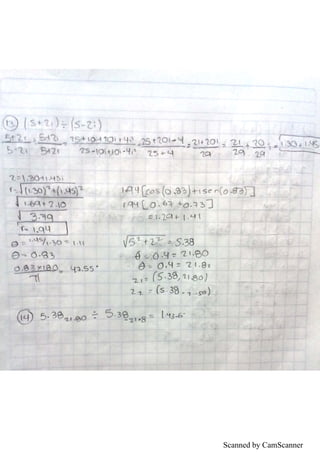 13) (5+2i) ÷ (5-2i)
5+2i / 5-2i = 5+2i / 5+2i = 25+10i+10i+4i / 25-10i+10i-4i = 25+20i-4 / 25+4 = 21+20i / 29 = 21/29 + 20/29 i = 1.30+1.45
z=1.30+1.45i
r=√(1.30)²+(1.45)²
√1.69+2.10
√3.79
r=1.94
θ=1.45/1.30=1.11
θ=0.83
0.83×180/π=47.55°
1.94[cos(0.83)+isen(0.83)]
1.94[0.67+0.73]
=1.29+1.41
√5²+2²=5.38
θ=0.4=21.80
θ=0.4=21.81
z1=(5.38,21.80)
z2=(5.38
14) 5.38 21.80 ÷ 5.38 21.8 =
Scanned by CamScanner